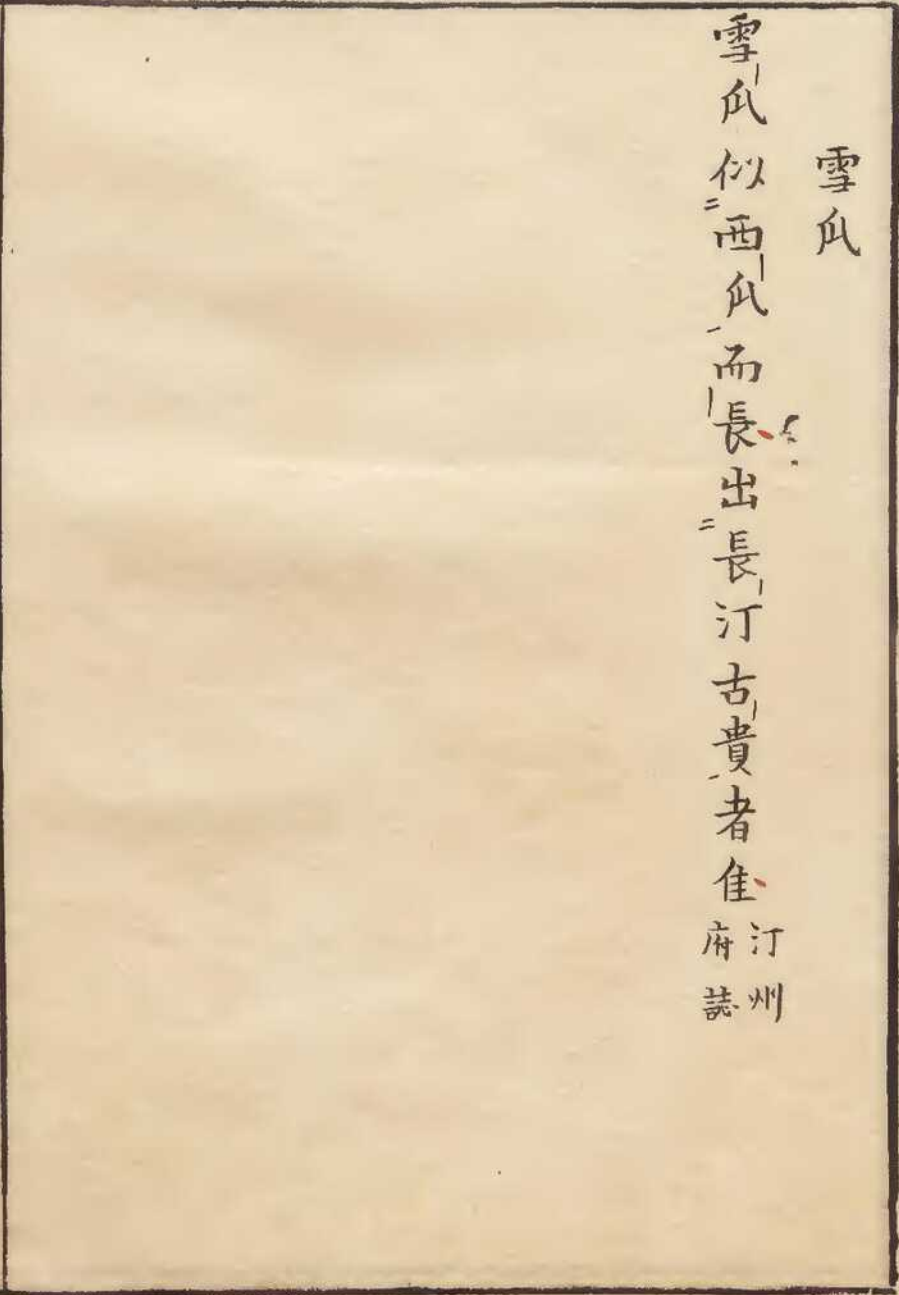 雪瓜
雪瓜似西瓜而長出長汀古貴者佳
汀州
府誌